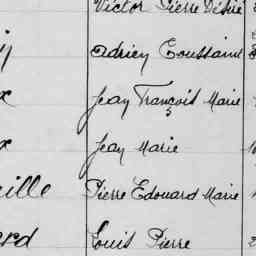 Victor Pierre Désiré
Adrien Toussaint
Jean François Marie
Jean Marie
ille Pierre Edouard Marie
erd Louis Pierre